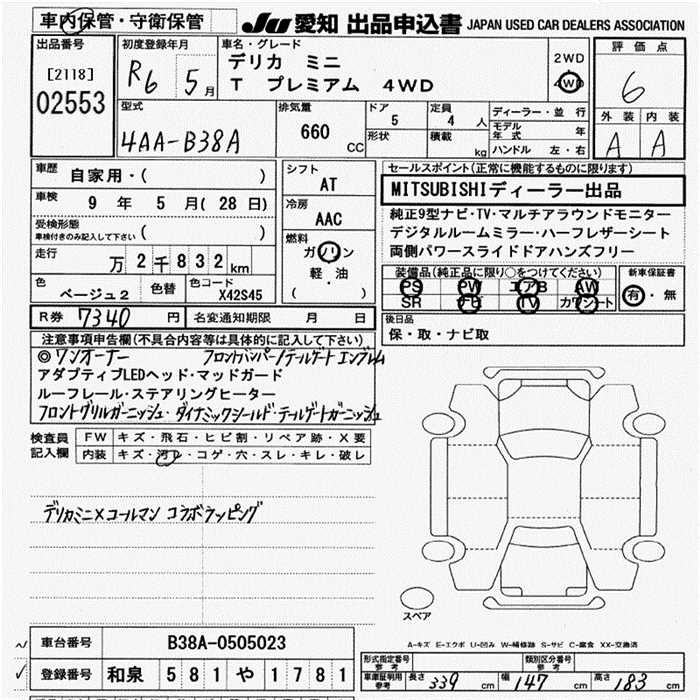 車内保管・守衛保管 JU 愛知 出品申込書 JAPAN USED CAR DEALERS ASSOCIATION
出品番号
[2118]
02553
初度登録年月
R6 5月
車名・グレード
デリカ ミニ
T プレミアム 4WD
2WD
4WD
評価点
6
外装 内装
A A
型式
4AA-B38A
排気量
660
CC
ドア
5
定員
4人
形状
積載
kg
ディーラー・並行
モデル年式 年
ハンドル 左・右
車歴
自家用・( )
車検
9年 5月(28日)
受検形態
車検付きのみ記入して下さい ( )
走行
万2千832km
色
ベージュ2
色替
色コード
X42S45
シフト
AT
冷房
AAC
燃料
ガソリン
軽・油
( )
セールスポイント(正常に機能するものに限ります)
MITSUBISHIディーラー出品
純正9型ナビ・TV・マルチアラウンドモニター
デジタルルームミラー・ハーフレザーシート
両側パワースライドドアハンズフリー
装備品(純正品に限り○をつけてください)
PS PW エアB AW
SR TV カワシート
新車保証書
有・無
R券 7340円
名変通知期限 月 日
後日品
保・取・ナビ取
注意事項申告欄(不具合内容等は具体的に記入して下さい)
◎ワンオーナー フロントバンパー/テールゲートエンブレム
アダプティブLEDヘッド・マッドガード
ルーフレール・ステアリングヒーター
フロントグリルガーニッシュ・ダイナミックシールド・テールゲートガーニッシュ
検査員記入欄
FW キズ・飛石・ヒビ割・リペア跡・X要
内装 キズ・汚レ・コゲ・穴・スレ・キレ・破レ
デリカミニ×コールマン コラボラッピング
スペア
A-キズ E-エクボ U-凹み W-補修跡 S-サビ C-腐食 XX-交換済
車台番号 B38A-0505023
登録番号 和泉 581 や 1781
形式指定番号 参考
類別区分番号 参考
車庫証明用 参考 長さ 339cm 幅 147cm 高さ 183cm